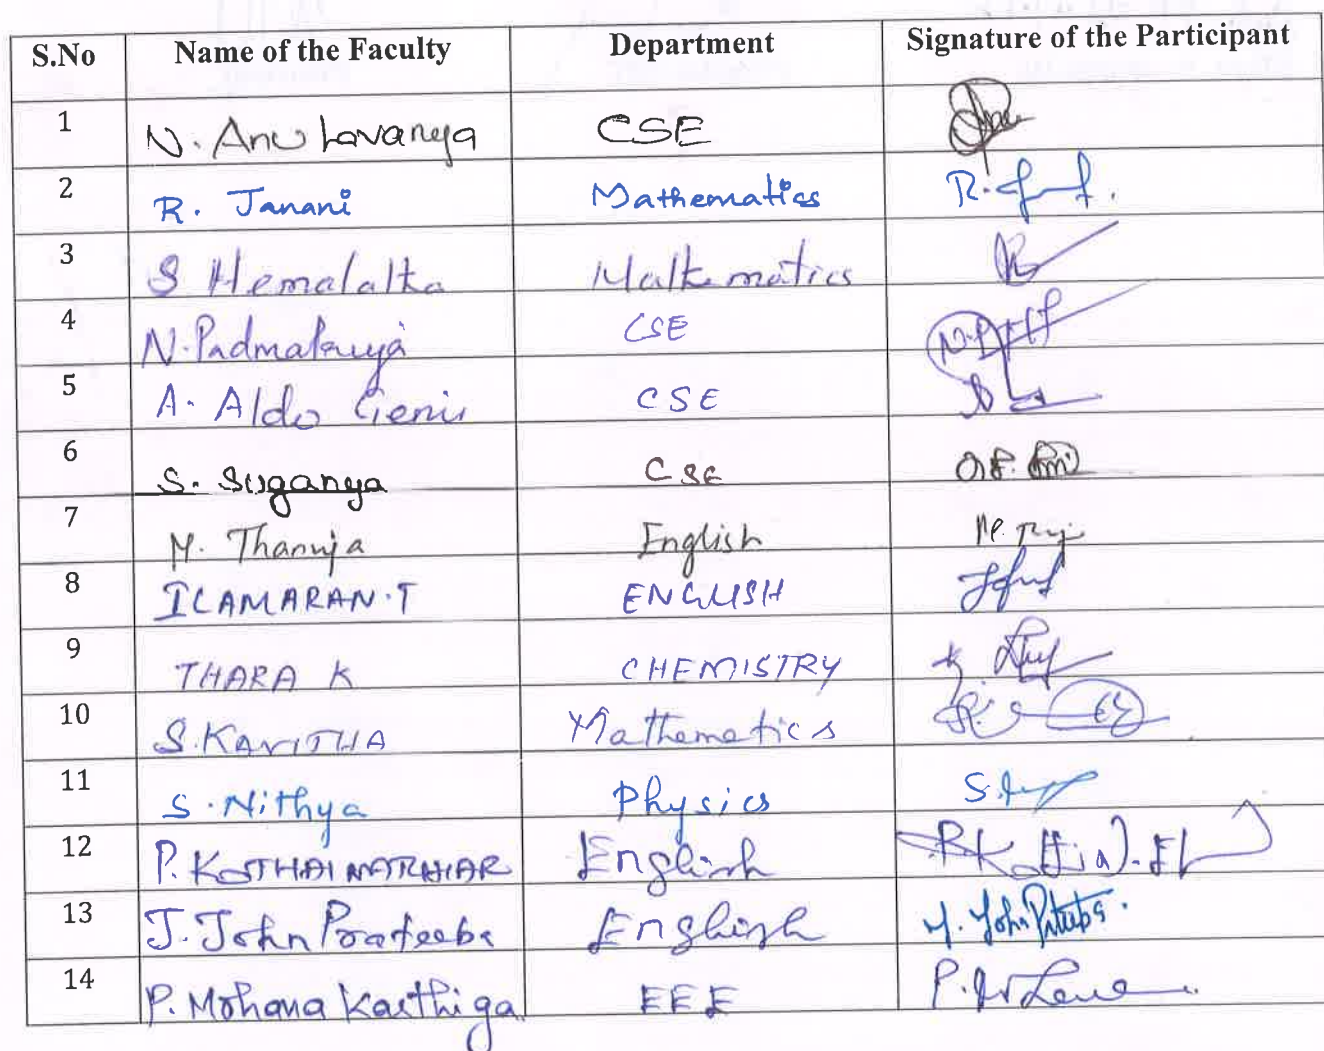 S.No Name of the Faculty Department Signature of the Participant
1 N. Anu Lavanya CSE
2 R. Janani Mathematics
3 S Hemalatha Mathematics
4 N. Padmapriya CSE
5 A. Aldo Genis CSE
6 S. Suganya CSE
7 M. Thanuja English
8 ILAMARAN.T ENGLISH
9 THARA K CHEMISTRY
10 S.KAVITHA Mathematics
11 S. Nithya Physics
12 P. KOTHAI NATCHIAR English
13 J. John Prateeba English
14 P. Mohana Karthiga EEE